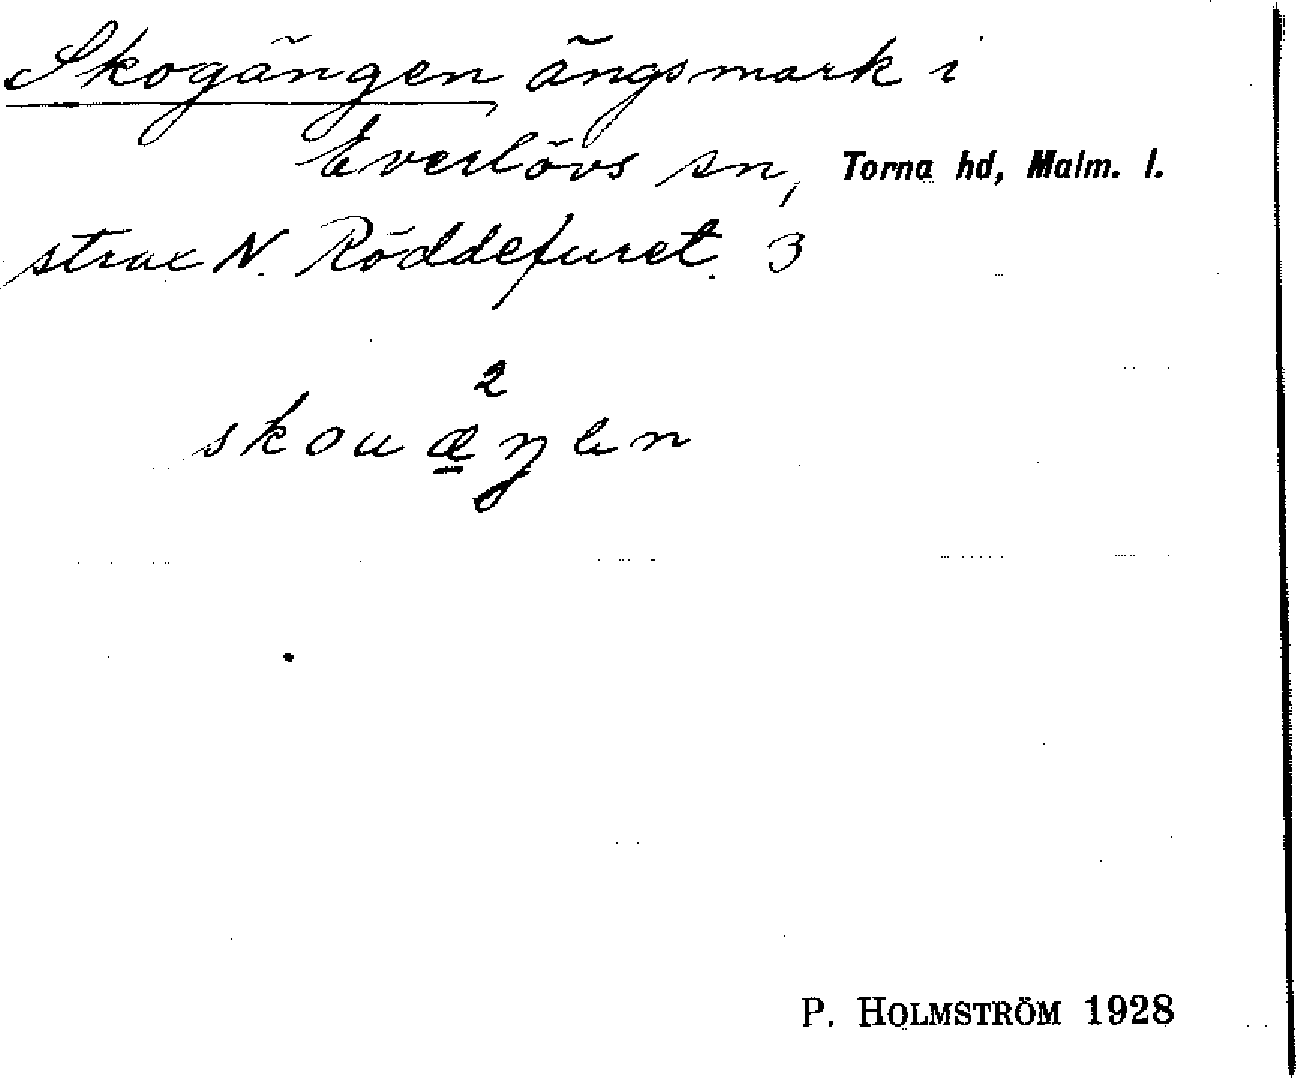 Skogängen ängsmark i
Everlövs sn, Torna hd, Malm. l.
strax N. Röddefuret. 3
2
skouæŋen
P. HOLMSTRÖM 1928